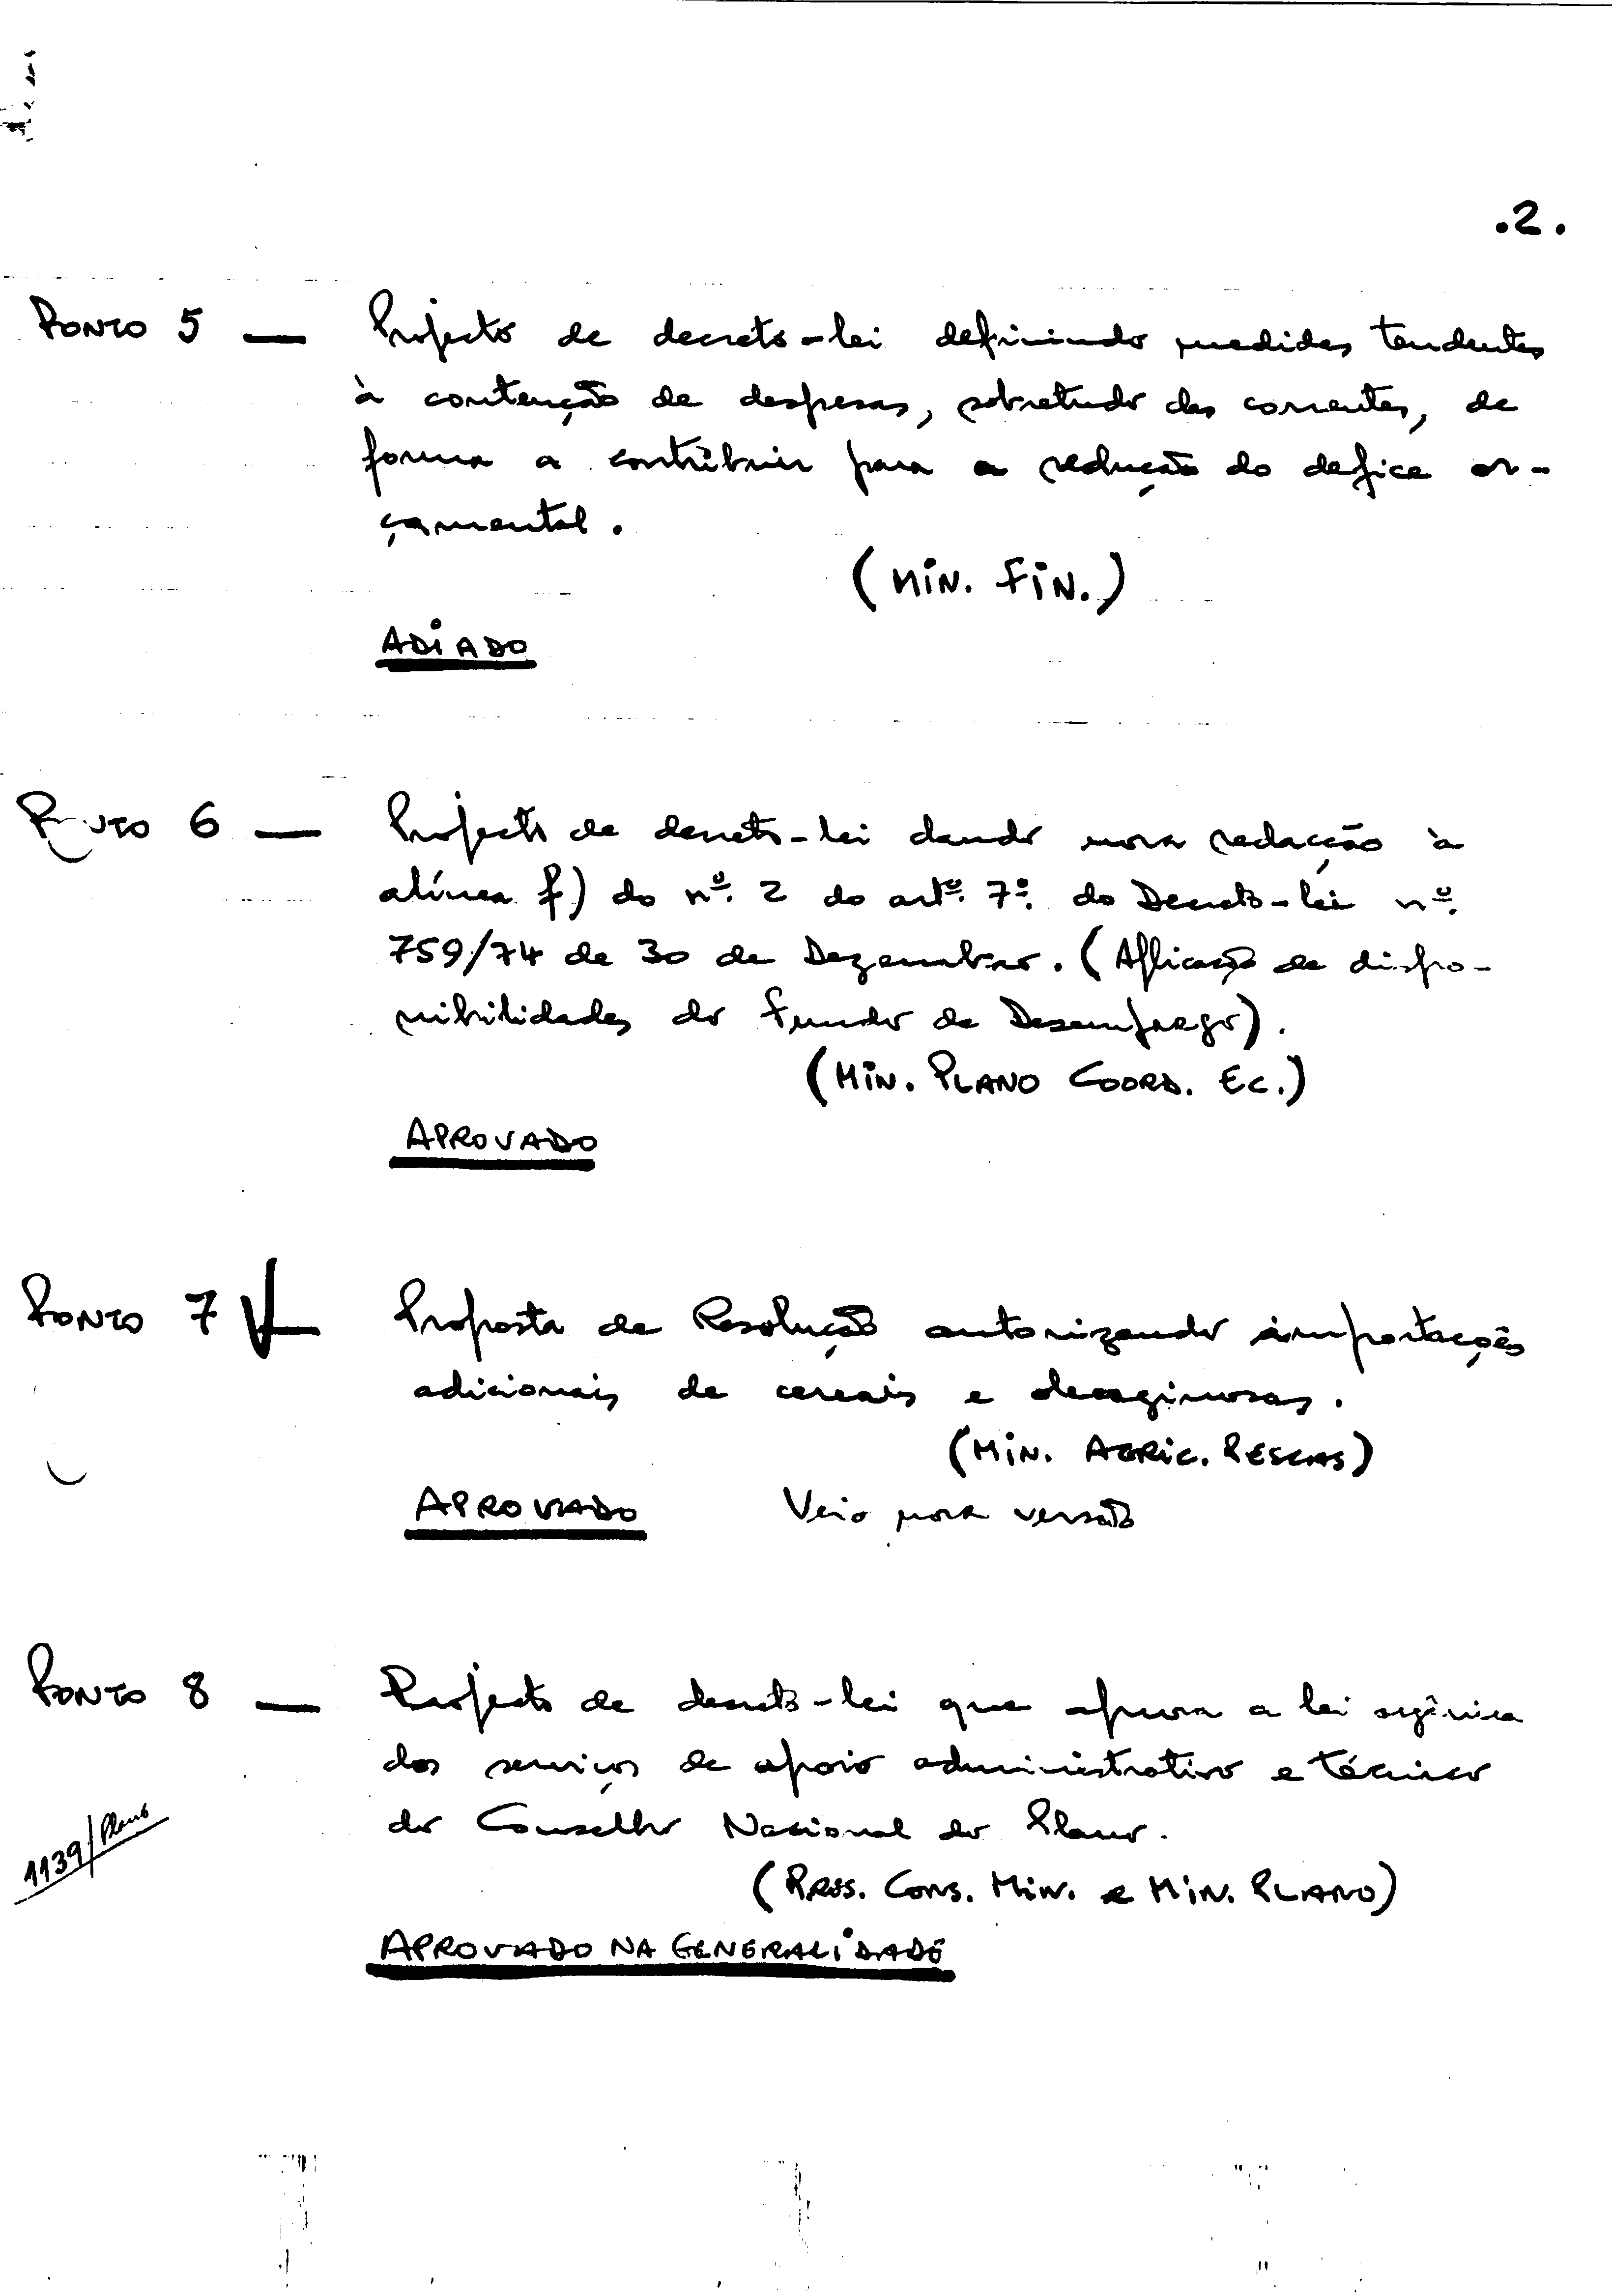 .2.
PONTO 5 — Projecto de decreto-lei definindo medidas tendentes
à contenção de despesas, sobretudo das correntes, de
forma a contribuir para a redução do defice or-
çamental.
(MIN. FIN.)
ADIADO
PONTO 6 — Projecto de decreto-lei dando nova redacção à
alínea f) do nº. 2 do artº. 7º. do Decreto-lei nº.
759/74 de 30 de Dezembro. (Aplicação de dispo-
nibilidades do Fundo de Desemprego).
(MIN. PLANO COORD. EC.)
APROVADO
PONTO 7 — Proposta de Resolução autorizando importações
adicionais de cereais e oleaginosas.
(MIN. AGRIC. PESCAS)
APROVADO Veio nova versão
PONTO 8 — Projecto de decreto-lei que aprova a lei orgânica
dos serviços de apoio administrativo e técnico
do Conselho Nacional do Plano.
1139/Plano
(PRES. CONS. MIN. e MIN. PLANO)
APROVADO NA GENERALIDADE